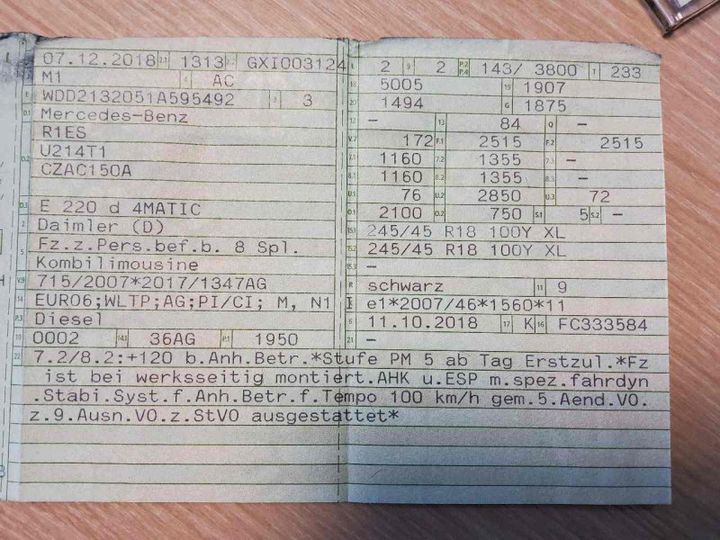 07.12.2018 2.1 1313 2.2 GXI003124
M1 4 AC
E WDD2132051A595492 3 3
D.1 Mercedes-Benz
R1ES
D.2 U214T1
CZAC150A
D.3 E 220 d 4MATIC
2 Daimler (D)
5 Fz.z.Pers.bef.b. 8 Spl.
Kombilimousine
V.9 715/2007*2017/1347AG
14 EURO6;WLTP;AG;PI/CI; M, N1
P.3 Diesel
10 0002 14.1 36AG P.1 1950
L 2 9 2 P.2 P.4 143/ 3800 T 233
18 5005 19 1907
20 1494 G 1875
12 – 13 84 Q –
V.7 172 F.1 2515 F.2 2515
7.1 1160 7.2 1355 7.3 –
8.1 1160 8.2 1355 8.3 –
U.1 76 U.2 2850 U.3 72
O.1 2100 O.2 750 S.1 5 S.2 –
15.1 245/45 R18 100Y XL
15.2 245/45 R18 100Y XL
15.3 –
R schwarz 11 9
K e1*2007/46*1560*11
6 11.10.2018 17 K 16 FC333584
21 –
22 7.2/8.2:+120 b.Anh.Betr.*Stufe PM 5 ab Tag Erstzul.*Fz
ist bei werksseitig montiert.AHK u.ESP m.spez.fahrdyn
.Stabi.Syst.f.Anh.Betr.f.Tempo 100 km/h gem.5.Aend.VO.
z.9.Ausn.VO.z.StVO ausgestattet*